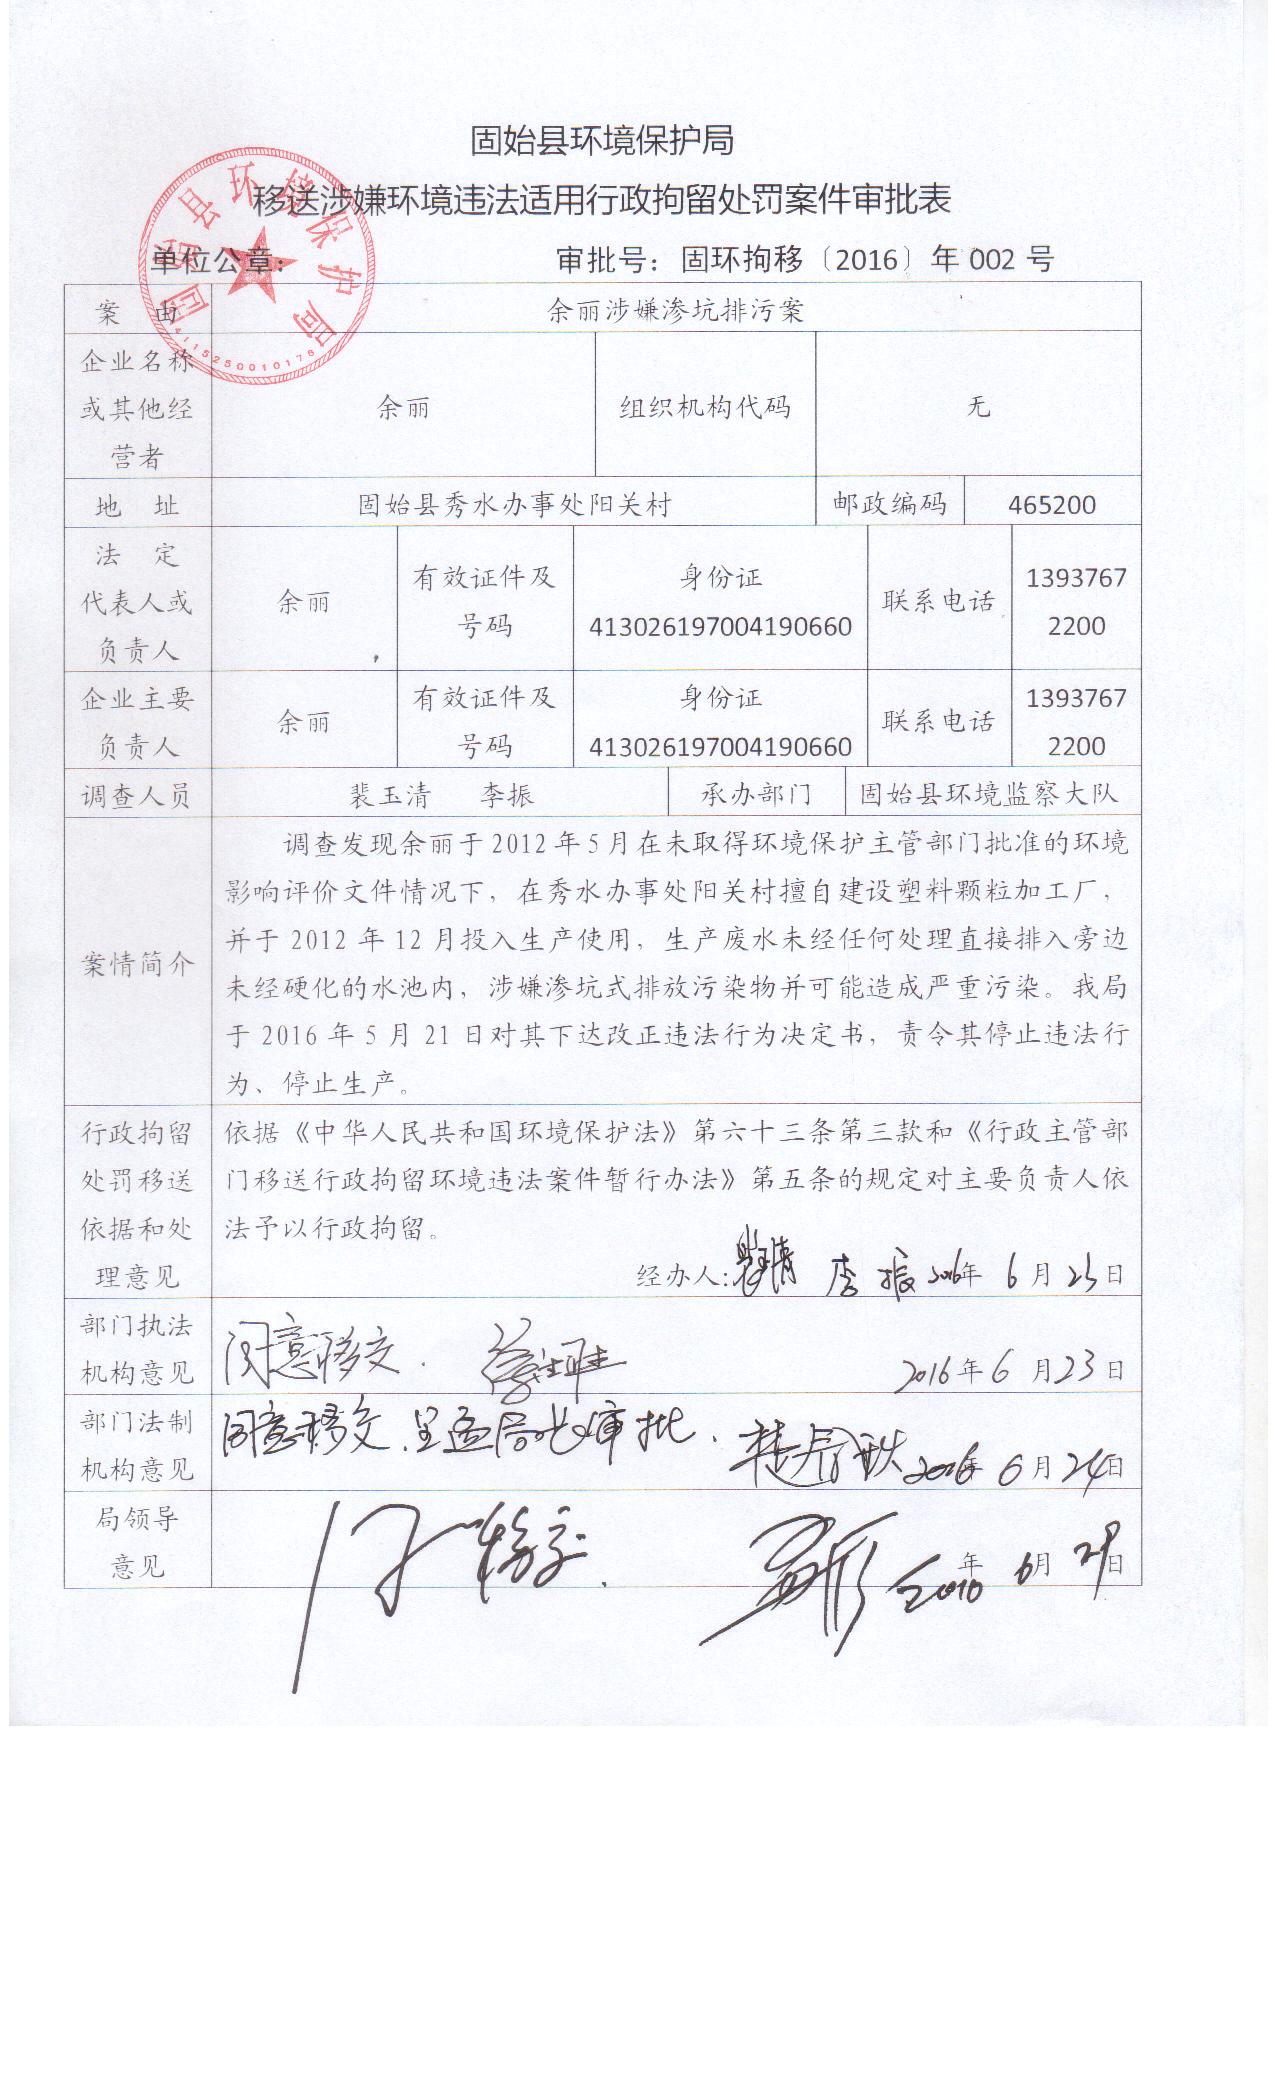 固始县环境保护局
移送涉嫌环境违法适用行政拘留处罚案件审批表
单位公章： 审批号：固环拘移〔2016〕年 002 号
固始县环境保护局
4115250010178
案 由 余丽涉嫌渗坑排污案
企业名称
或其他经 余丽 组织机构代码 无
营者
地 址 固始县秀水办事处阳关村 邮政编码 465200
法 定 有效证件及 身份证 1393767
代表人或 余丽 联系电话
号码 413026197004190660 2200
负责人
企业主要 有效证件及 身份证 1393767
余丽 联系电话
负责人 号码 413026197004190660 2200
调查人员 裴玉清 李振 承办部门 固始县环境监察大队
调查发现余丽于 2012 年 5 月在未取得环境保护主管部门批准的环境
影响评价文件情况下，在秀水办事处阳关村擅自建设塑料颗粒加工厂，
并于 2012 年 12 月投入生产使用，生产废水未经任何处理直接排入旁边
案情简介
未经硬化的水池内，涉嫌渗坑式排放污染物并可能造成严重污染。我局
于 2016 年 5 月 21 日对其下达改正违法行为决定书，责令其停止违法行
为、停止生产。
行政拘留 依据《中华人民共和国环境保护法》第六十三条第三款和《行政主管部
处罚移送 门移送行政拘留环境违法案件暂行办法》第五条的规定对主要负责人依
依据和处 法予以行政拘留。
理意见 经办人：裴玉清 李振 2016年 6 月 23 日
部门执法
机构意见 同意移交. 2016 年 6 月 23 日
部门法制 同意移交.呈孟局长审批.
机构意见 2016年 6 月 24 日
局领导
意见 年 6月 29日